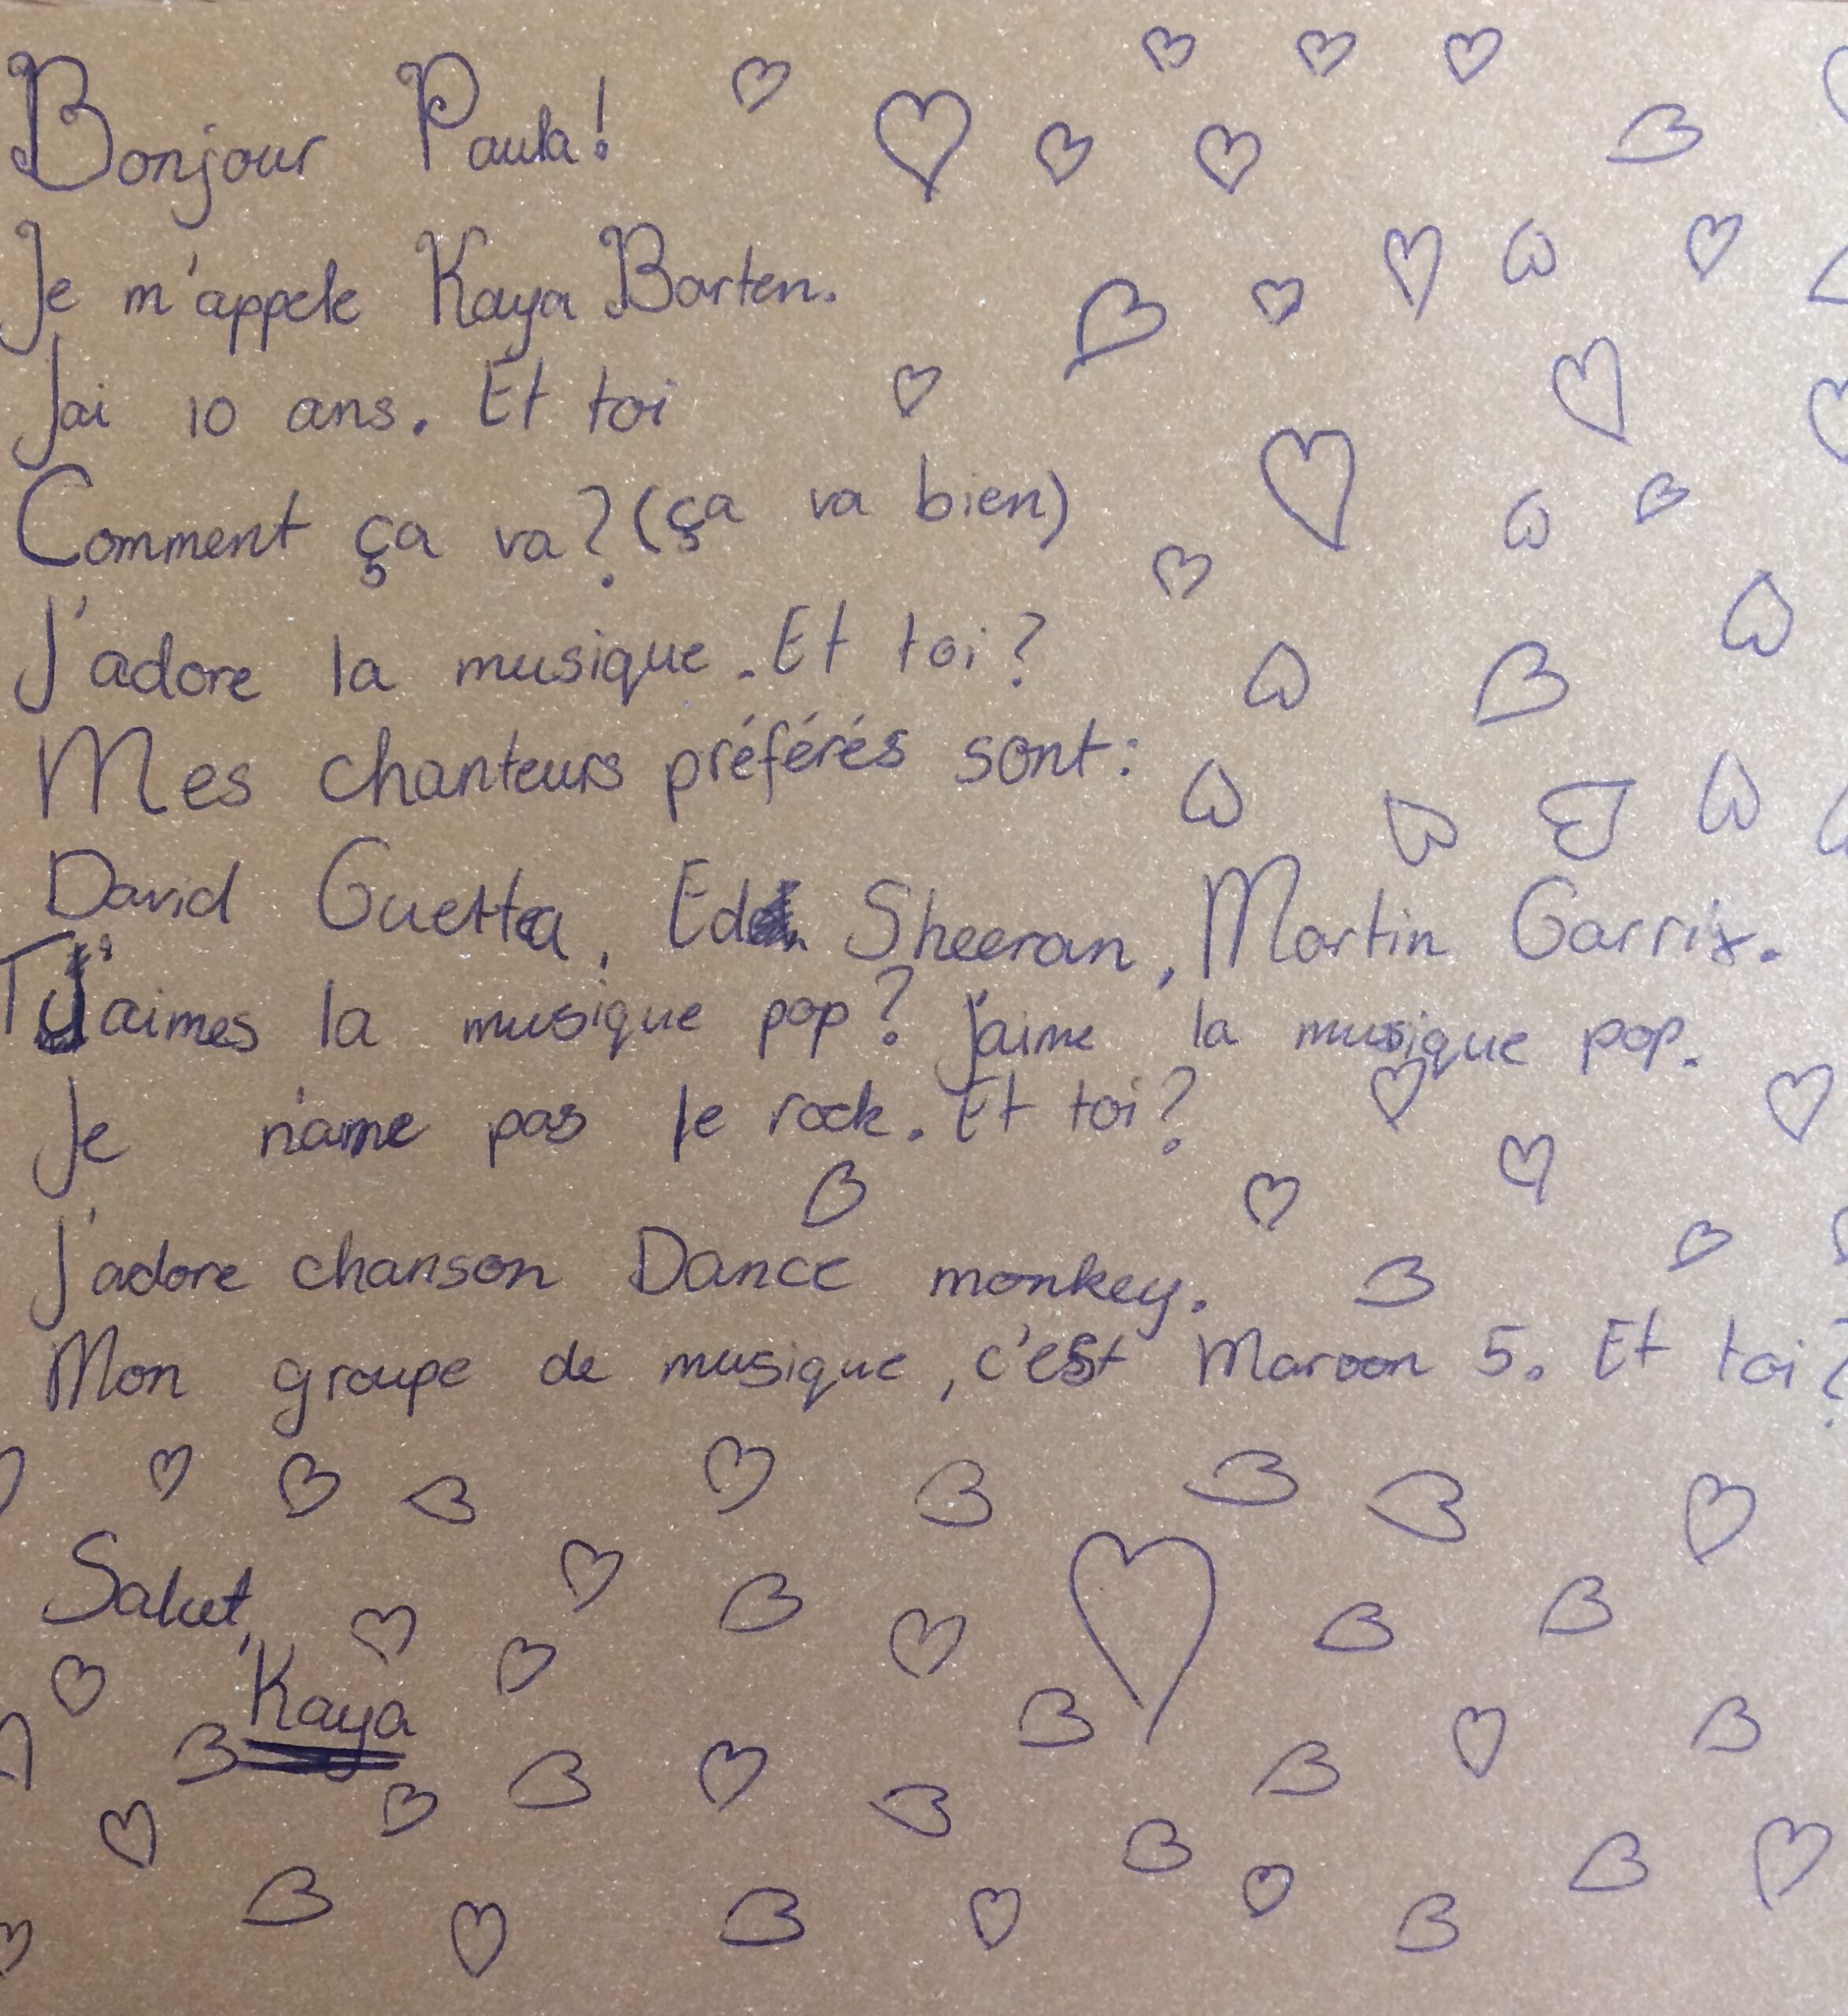 Bonjour Paula!
Je m'appele Kaya Barten.
Jai 10 ans. Et toi
Comment ça va? (ça va bien)
J'adore la musique. Et toi?
Mes chanteurs préférés sont:
David Guetta, Ed Sheeran, Martin Garrix.
Tu aimes la musique pop? j'aime la musique pop.
Je n'ame pas le rock. Et toi?
J'adore chanson Dance monkey.
Mon groupe de musique, c'est Maroon 5. Et toi?
Salut,
Kaya